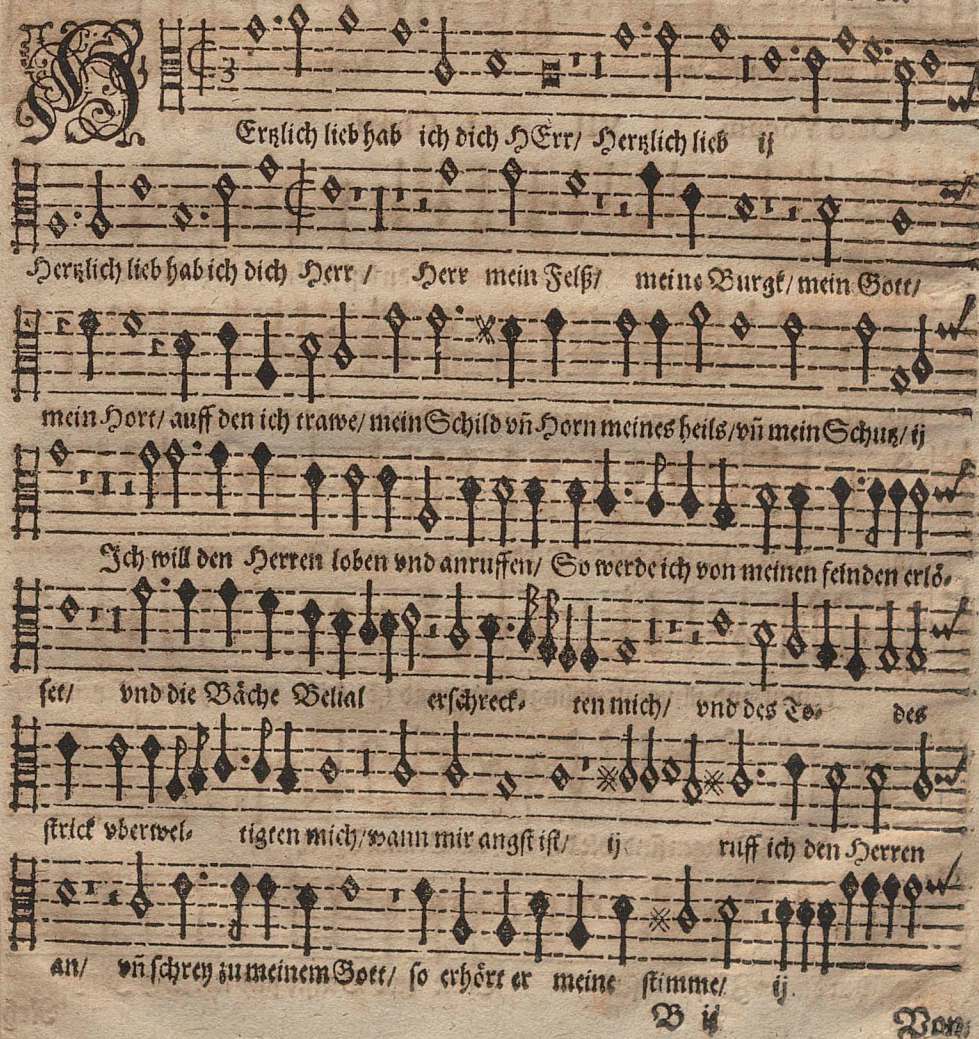 HErtzlich lieb hab ich dich HErr/ Hertzlich lieb ij
Hertzlich lieb hab ich dich Herr / Herr mein Felß/ meine Burgk/ mein Gott/
mein Hort/ auff den ich trawe/ mein Schild vñ Horn meines heils/ vñ mein Schutz/ ij
Ich will den Herren loben vnd anruffen/ So werde ich von meinen feinden erlö-
set/ vnd die Bäche Belial erschreck- ten mich/ vnd des To- des
strick vberwel- tigten mich/ wann mir angst ist/ ij ruff ich den Herren
an/ vñ schrey zu meinem Gott/ so erhört er meine stimme/ ij.
B ij Von